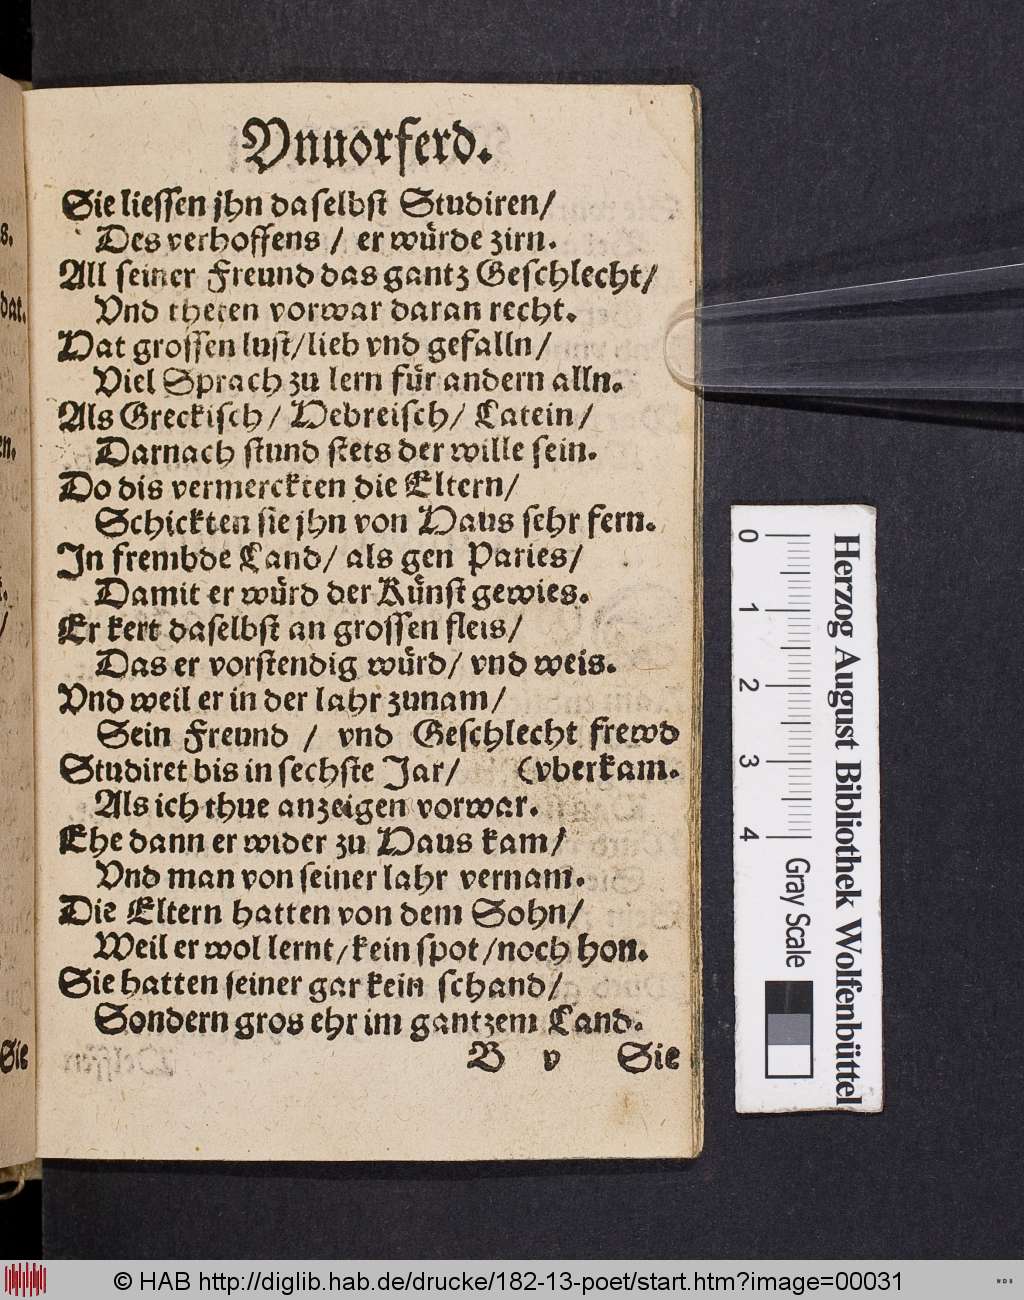 Vnuorferd.
Sie liessen jhn daselbst Studiren/
Des verhoffens / er würde zirn.
All seiner Freund das gantz Geschlecht/
Vnd theten vorwar daran recht.
Hat grossen lust/lieb vnd gefalln/
Viel Sprach zu lern für andern alln.
Als Greckisch/ Hebreisch/ Latein/
Darnach stund stets der wille sein.
Do dis vermerckten die Eltern/
Schickten sie jhn von Haus sehr fern.
In frembde Land/ als gen Paries/
Damit er würd der Künst gewies.
Er kert daselbst an grossen fleis/
Das er vorstendig würd/ vnd weis.
Vnd weil er in der lahr zunam/
Sein Freund / vnd Geschlecht frewd
Studiret bis in sechste Jar/ (vberkam.
Als ich thue anzeigen vorwar.
Ehe dann er wider zu Haus kam/
Vnd man von seiner lahr vernam.
Die Eltern hatten von dem Sohn/
Weil er wol lernt/kein spot/noch hon.
Sie hatten seiner gar kein schand/
Sondern gros ehr im gantzem Land.
B v Sie
s.
dat.
en.
Sie
0 1 2 3 4
Herzog August Bibliothek Wolfenbüttel
Gray Scale
© HAB http://diglib.hab.de/drucke/182-13-poet/start.htm?image=00031
WDB